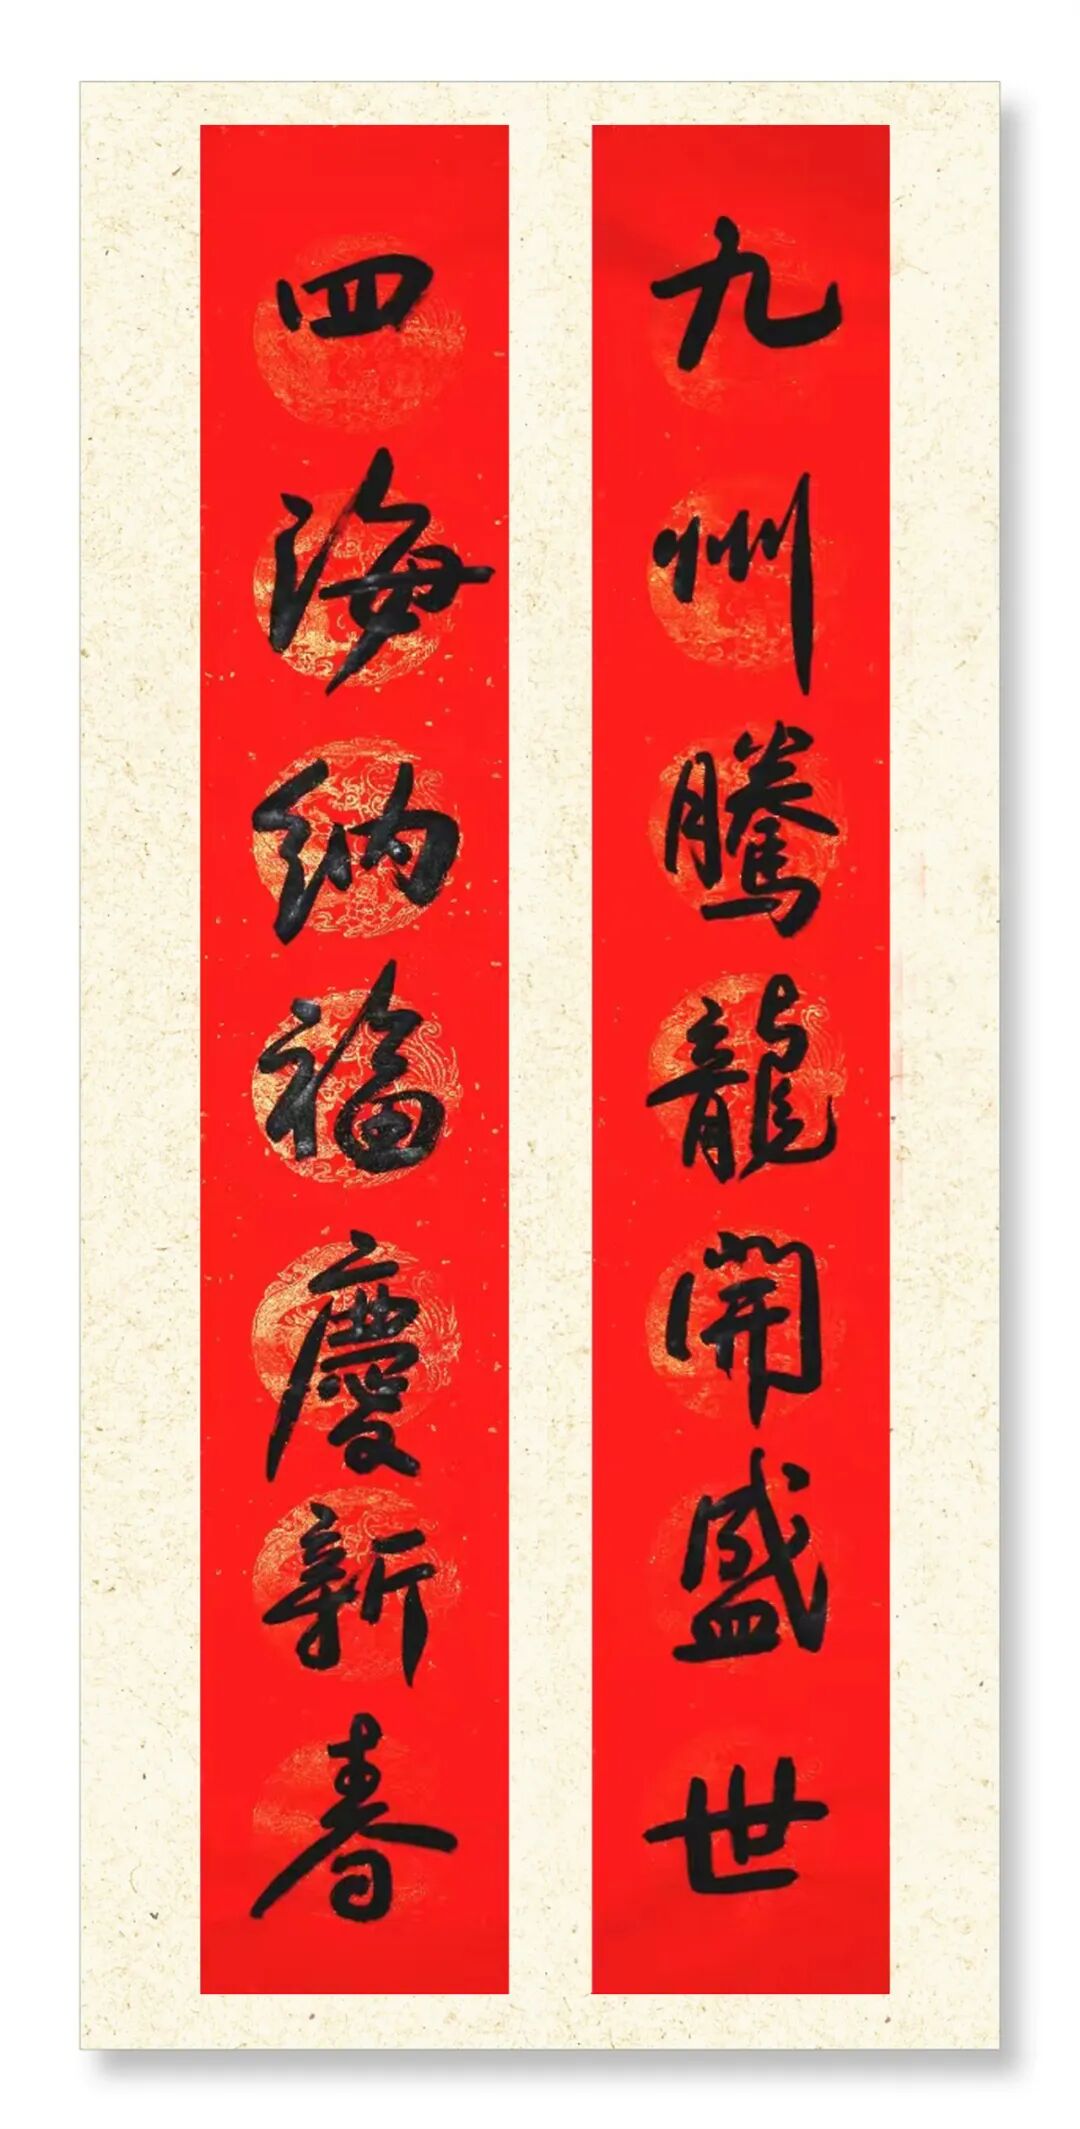 九州騰龍開盛世
四海纳福慶新春